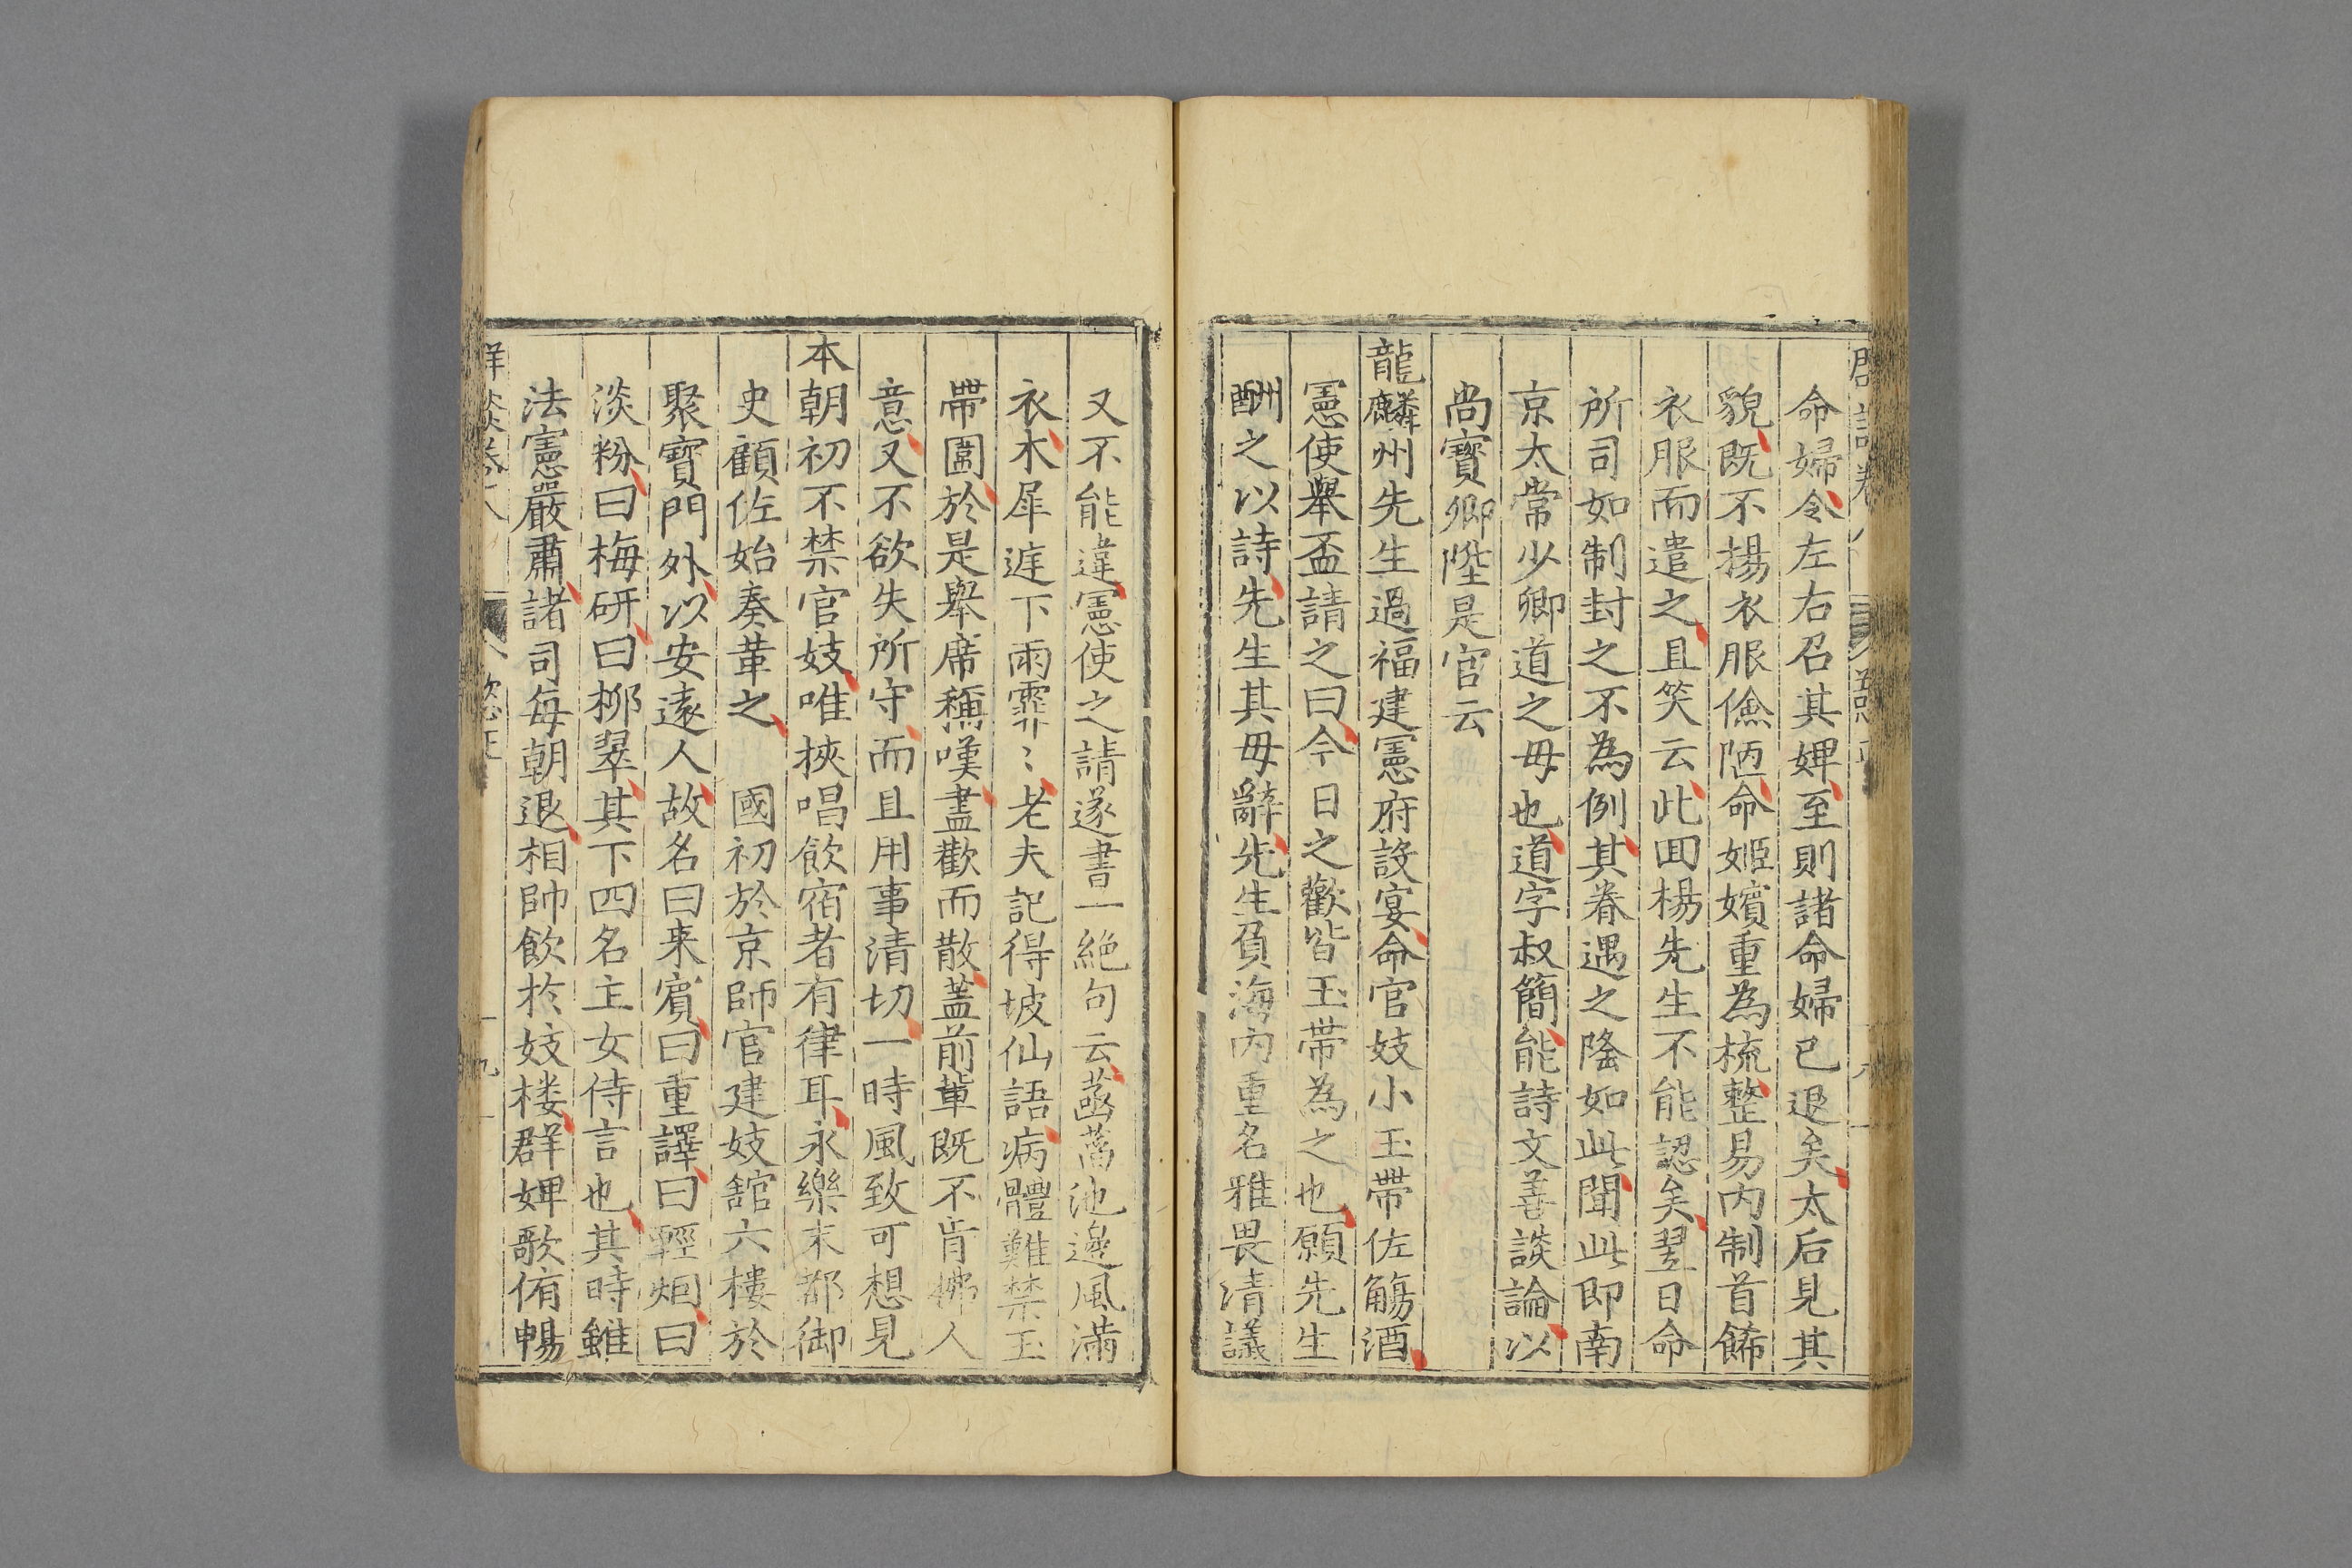 命婦令左右召其婢至則諸命婦已退矣太后見其
貌既不揚衣服儉陋命姬嬪重為梳整易內制首餙
衣服而遣之且笑云此囬楊先生不能認矣翌日命
所司如制封之不為例其眷遇之隆如此聞此即南
京太常少卿道之母也道字叔簡能詩文善談論以
尚寶卿陞是官云
龍麟州先生過福建憲府設宴命官妓小玉帶佐觴酒
憲使舉盃請之曰今日之歡皆玉帶為之也願先生
酬之以詩先生其毋辭先生負海內重名雅畏清議
又不能違憲使之請遂書一絕句云菡萏池邊風滿
衣木犀遅下雨霏〻老夫記得坡仙語病體難禁玉
帶圍於是舉席稱嘆盡歡而散蓋前輩既不肯拂人
意又不欲失所守而且用事清切一時風致可想見
本朝初不禁官妓唯挾唱飲宿者有律耳永樂末都御
史顧佐始奏革之 國初於京師官建妓舘六樓於
聚寶門外以安遠人故名曰来賓曰重譯曰輕烟曰
淡粉曰梅研曰栁翠其下四名主女侍言也其時雖
法憲嚴肅諸司每朝退相帥飲於妓楼群婢歌侑暢